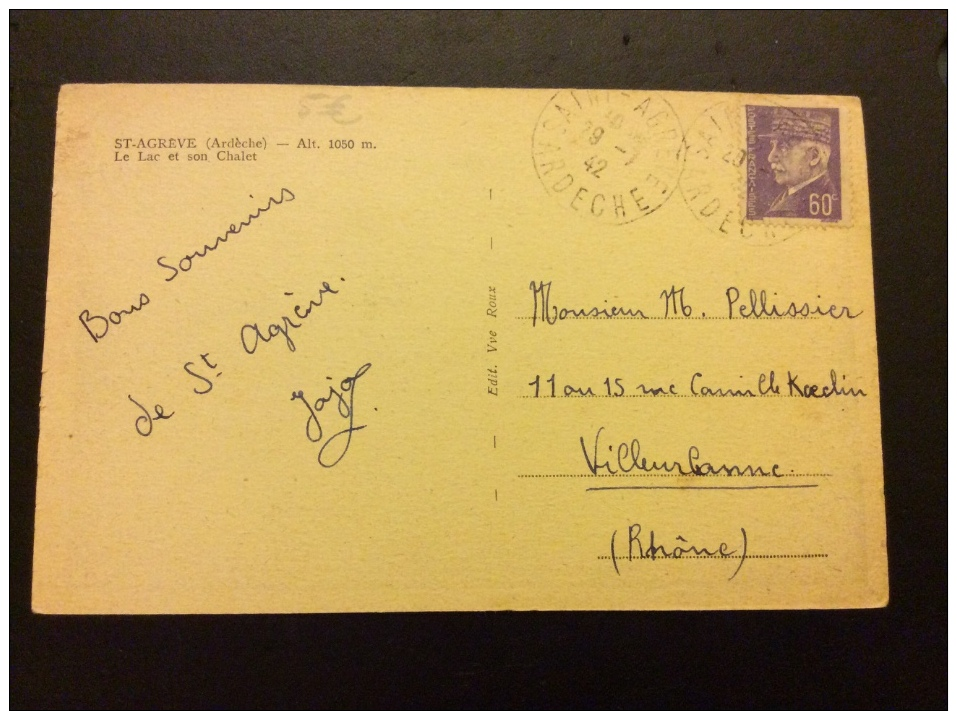 5€
ST-AGRÈVE (Ardèche) — Alt. 1050 m.
Le Lac et son Chalet
Bons Souvenirs
de St Agrève.
Jajo
Edit. Vve Roux
SAINT-AGRÈVE
42
ARDECHE
ARDECH
60c
Monsieur M. Pellissier
11 ou 15 rue Camille Kœclin
Villeurbanne.
(Rhône)